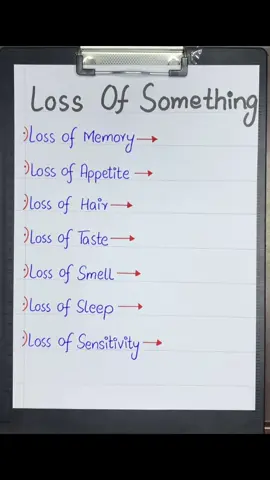 Loss Of Something
Loss of Memory →
Loss of Appetite →
Loss of Hair →
Loss of Taste →
Loss of Smell →
Loss of Sleep →
Loss of Sensitivity →